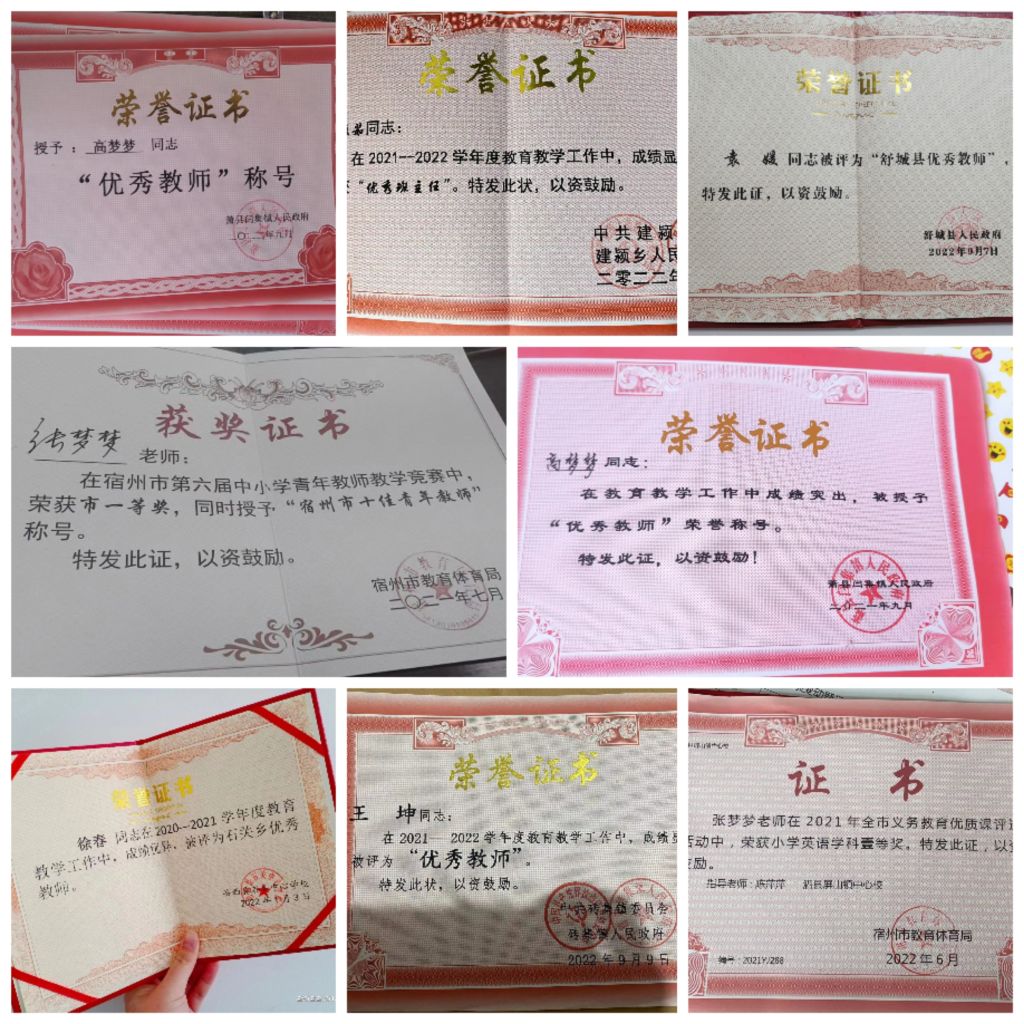 荣誉证书
授予：高梦梦 同志
“优秀教师”称号
萧县闫集镇人民政府
荣誉证书
同志：
在2021--2022学年度教育教学工作中，成绩显
“优秀班主任”。特发此状，以资鼓励。
中共建颍
建颍乡人民
二零二二年
荣誉证书
袁 媛 同志被评为“舒城县优秀教师”，
特发此证，以资鼓励。
舒城县人民政府
2022年9月7日
获奖证书
张梦梦 老师：
在宿州市第六届中小学青年教师教学竞赛中，
荣获市一等奖，同时授予“宿州市十佳青年教师”
称号。
特发此证，以资鼓励。
宿州市教育体育局
二〇二一年七月
荣誉证书
高梦梦 同志：
在教育教学工作中成绩突出，被授予
“优秀教师”荣誉称号。
特发此证，以资鼓励！
萧县闫集镇人民政府
二〇二一年九月
荣誉证书
徐春 同志在2020--2021学年度教育
教学工作中，成绩优异，被评为石关乡优秀
教师。
中心学校
荣誉证书
王 坤同志：
在2021—2022学年度教育教学工作中，成绩
被评为“优秀教师”。
特发此状，以资鼓励。
砖集镇人民政府
2022年9月9日
证 书
张梦梦老师在2021年全市义务教育优质课评
活动中，荣获小学英语学科壹等奖，特发此证，以资
鼓励。
指导老师：陈萍萍 泗县屏山镇中心校
宿州市教育体育局
编号：2021YJ268
2022年6月